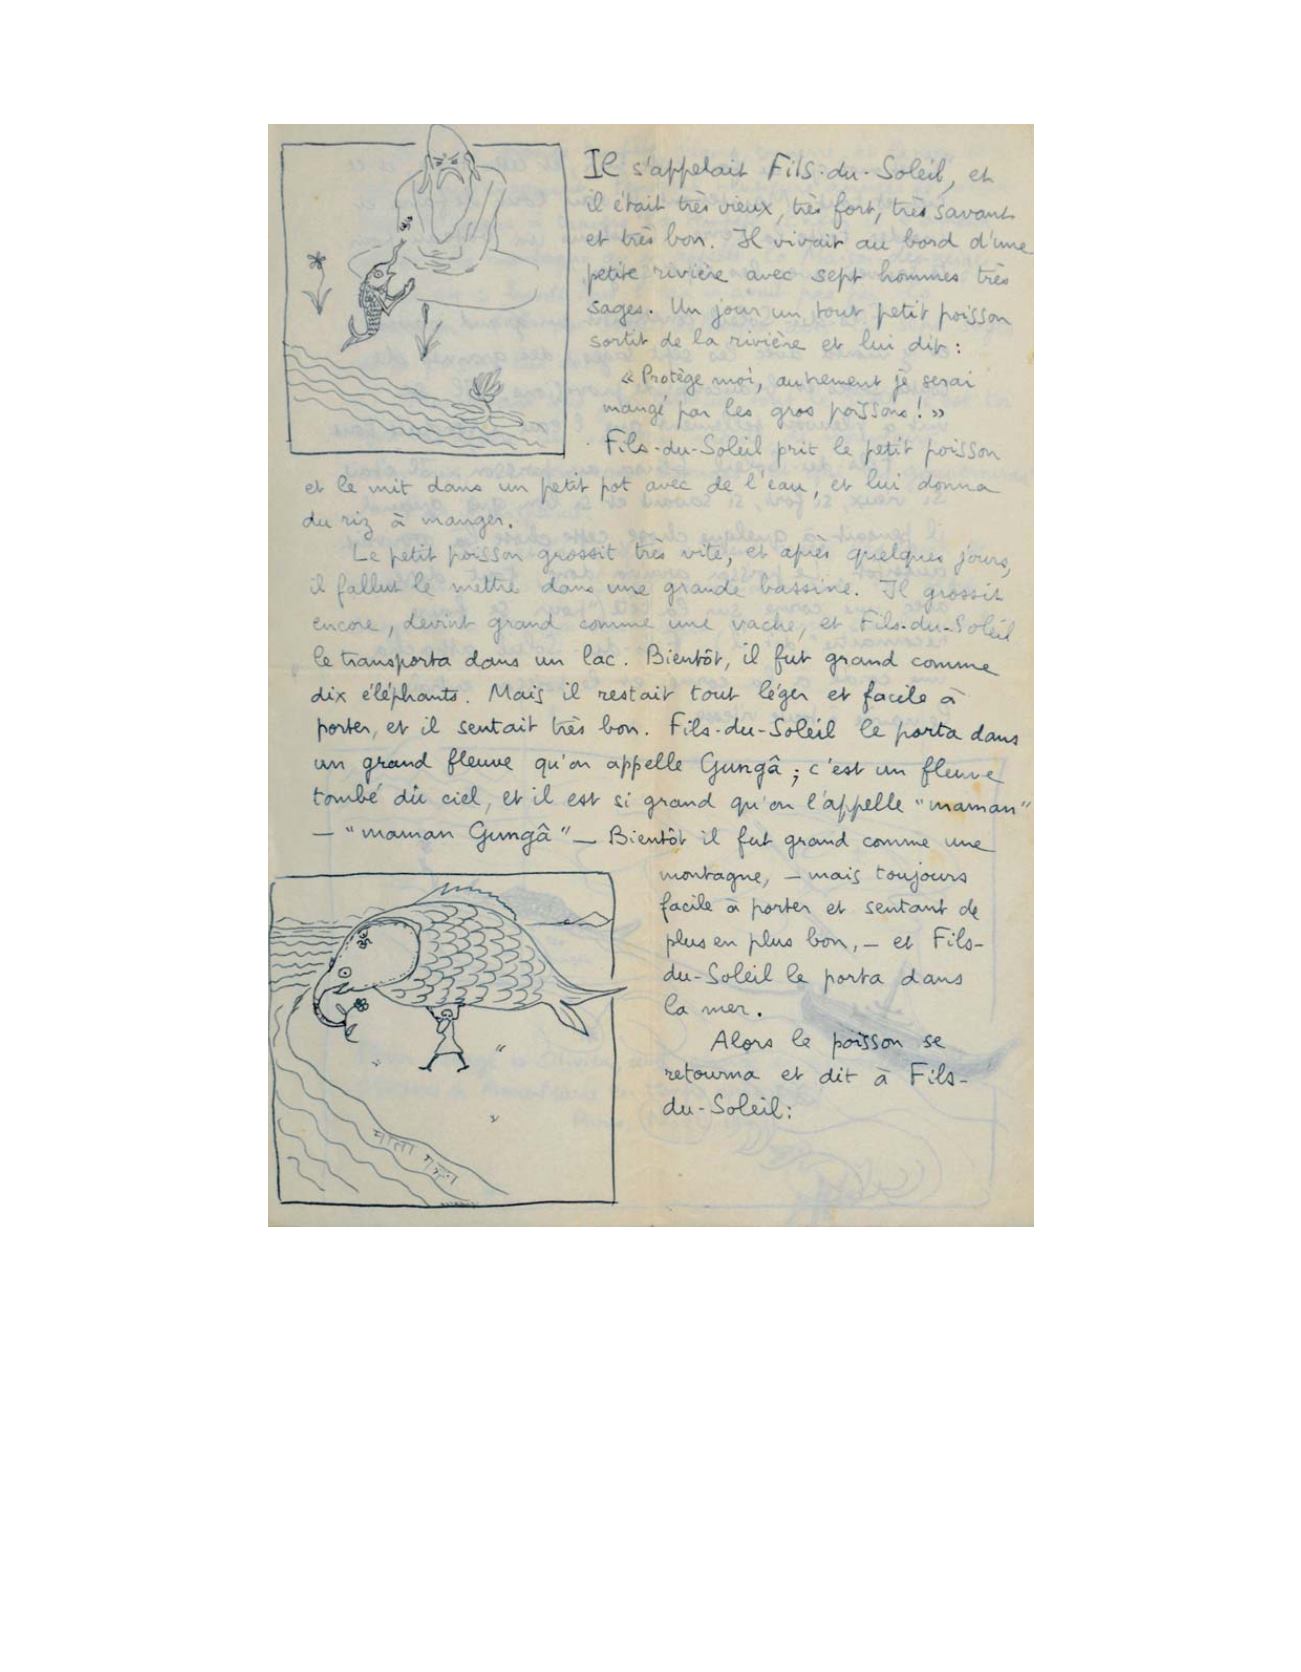 Il s'appelait Fils-du-Soleil, et
il était très vieux, très fort, très savant
et très bon. Il vivait au bord d'une
petite rivière avec sept hommes très
sages. Un jour un tout petit poisson
sortit de la rivière et lui dit :
« Protège moi, autrement je serai
mangé par les gros poissons ! »
Fils-du-Soleil prit le petit poisson
et le mit dans un petit pot avec de l'eau, et lui donna
du riz à manger.
Le petit poisson grossit très vite, et après quelques jours,
il fallut le mettre dans une grande bassine. Il grossit
encore, devint grand comme une vache, et Fils-du-Soleil
le transporta dans un lac. Bientôt, il fut grand comme
dix éléphants. Mais il restait tout léger et facile à
porter, et il sentait très bon. Fils-du-Soleil le porta dans
un grand fleuve qu'on appelle Gungâ ; c'est un fleuve
tombé du ciel, et il est si grand qu'on l'appelle "maman"
— "maman Gungâ" — Bientôt il fut grand comme une
montagne, — mais toujours
facile à porter et sentant de
plus en plus bon, — et Fils-
du-Soleil le porta dans
la mer.
Alors le poisson se
retourna et dit à Fils-
du-Soleil :
माता